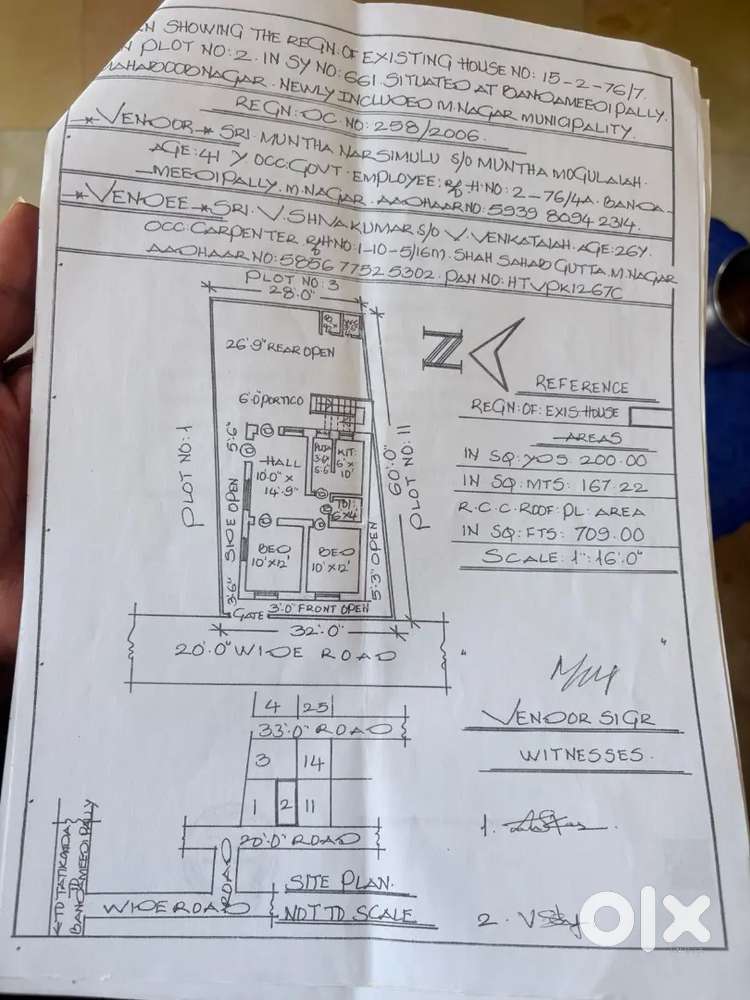 N SHOWING THE REGN.OF EXISTING HOUSE NO: 15-2-76/7.
N PLOT NO:2. IN SY NO:661. SITUATED AT BANDAMEEDIPALLY.
MAHABOOBNAGAR. NEWLY INCLUDED M.NAGAR MUNICIPALITY.
REGN:DC.NO:258/2006.
-*VENDOR-* SRI.MUNTHA NARSIMULU S/O MUNTHA MOGULAIAH.
AGE:41 Y OCC:GOVT.EMPLOYEE: R/o H.NO:2-76/4A. BANDA-
MEEDIPALLY. M.NAGAR. AADHAARNO:5939 8094 2314.
-*VENDEE-* SRI.V.SHIVAKUMAR.S/O V.VENKATAIAH.AGE:26Y.
OCC:CARPENTER R/o H.NO:1-10-5/16M. SHAH SAHAB GUTTA.M.NAGAR
AADHAAR NO:5856 7752 5302. PAN NO:HTVPK1267C
PLOT NO:3
28'.0"
26'9" REAR OPEN
6'.0"PORTICO
PLOT NO:1
5'.6"
SIDE OPEN
3'6"
HALL
10'.0"x
14'.9"
KIT:
6'x
10'
6'x4'
BED
10'x12'.
BED
10'x12'.
60'.0"
PLOT NO:11
5'.3" OPEN
GATE
3'.0" FRONT OPEN
32'.0"
20'.0" WIDE ROAD
N
REFERENCE
REGN:OF:EXIS:HOUSE
AREAS
IN SQ:YDS: 200.00
IN SQ:MTS: 167.22
R.C.C.ROOF:PL: AREA
IN SQ:FTS: 709.00
SCALE: 1":16'.0"
VENDOR SIGR
WITNESSES.
1.
2.
4 25
33'.0" ROAD
3 14
1 2 11
20'.0" ROAD
ROAD
WIDE ROAD
SITE PLAN.
NOT TO SCALE
olx